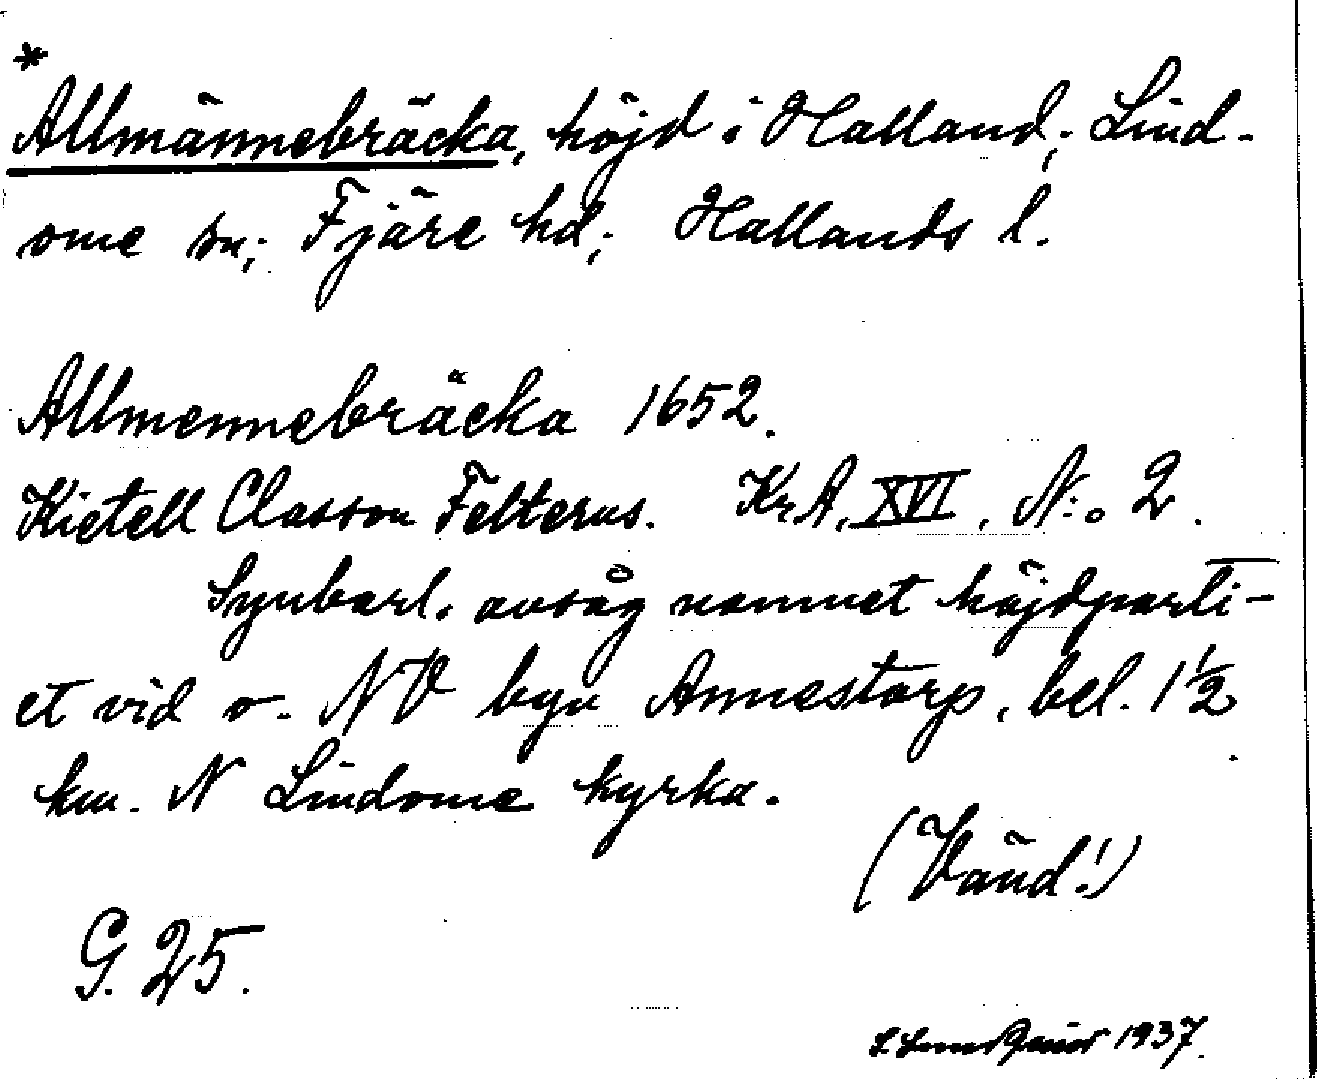 *
Allmännebräcka, höjd i Halland; Lind-
ome sn; Fjäre hd; Hallands l.
Allmennebräcka 1652.
Kietell Classon Felterus. Kr.A. XVI, N:o 2.
Synbarl. avsåg namnet höjdparti-
et vid o. NV byn Annestorp, bel. 1½
km. N Lindome kyrka.
(Vänd!)
G. 25.
1937.